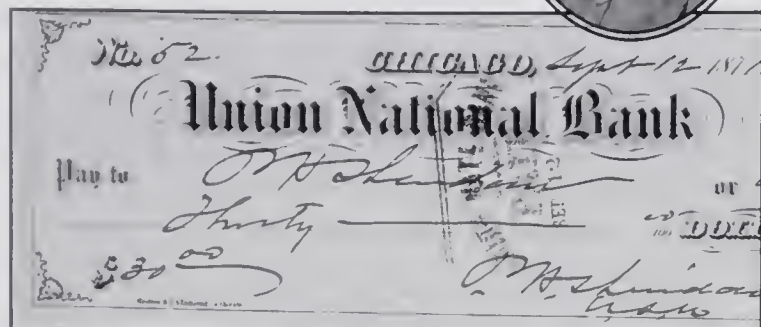 No. 52. CHICAGO, Sept 12 1871
Union National Bank
Pay to P H Sheridan or
Thirty 00/100 DOLL
$30 00
P. H. Sheridan